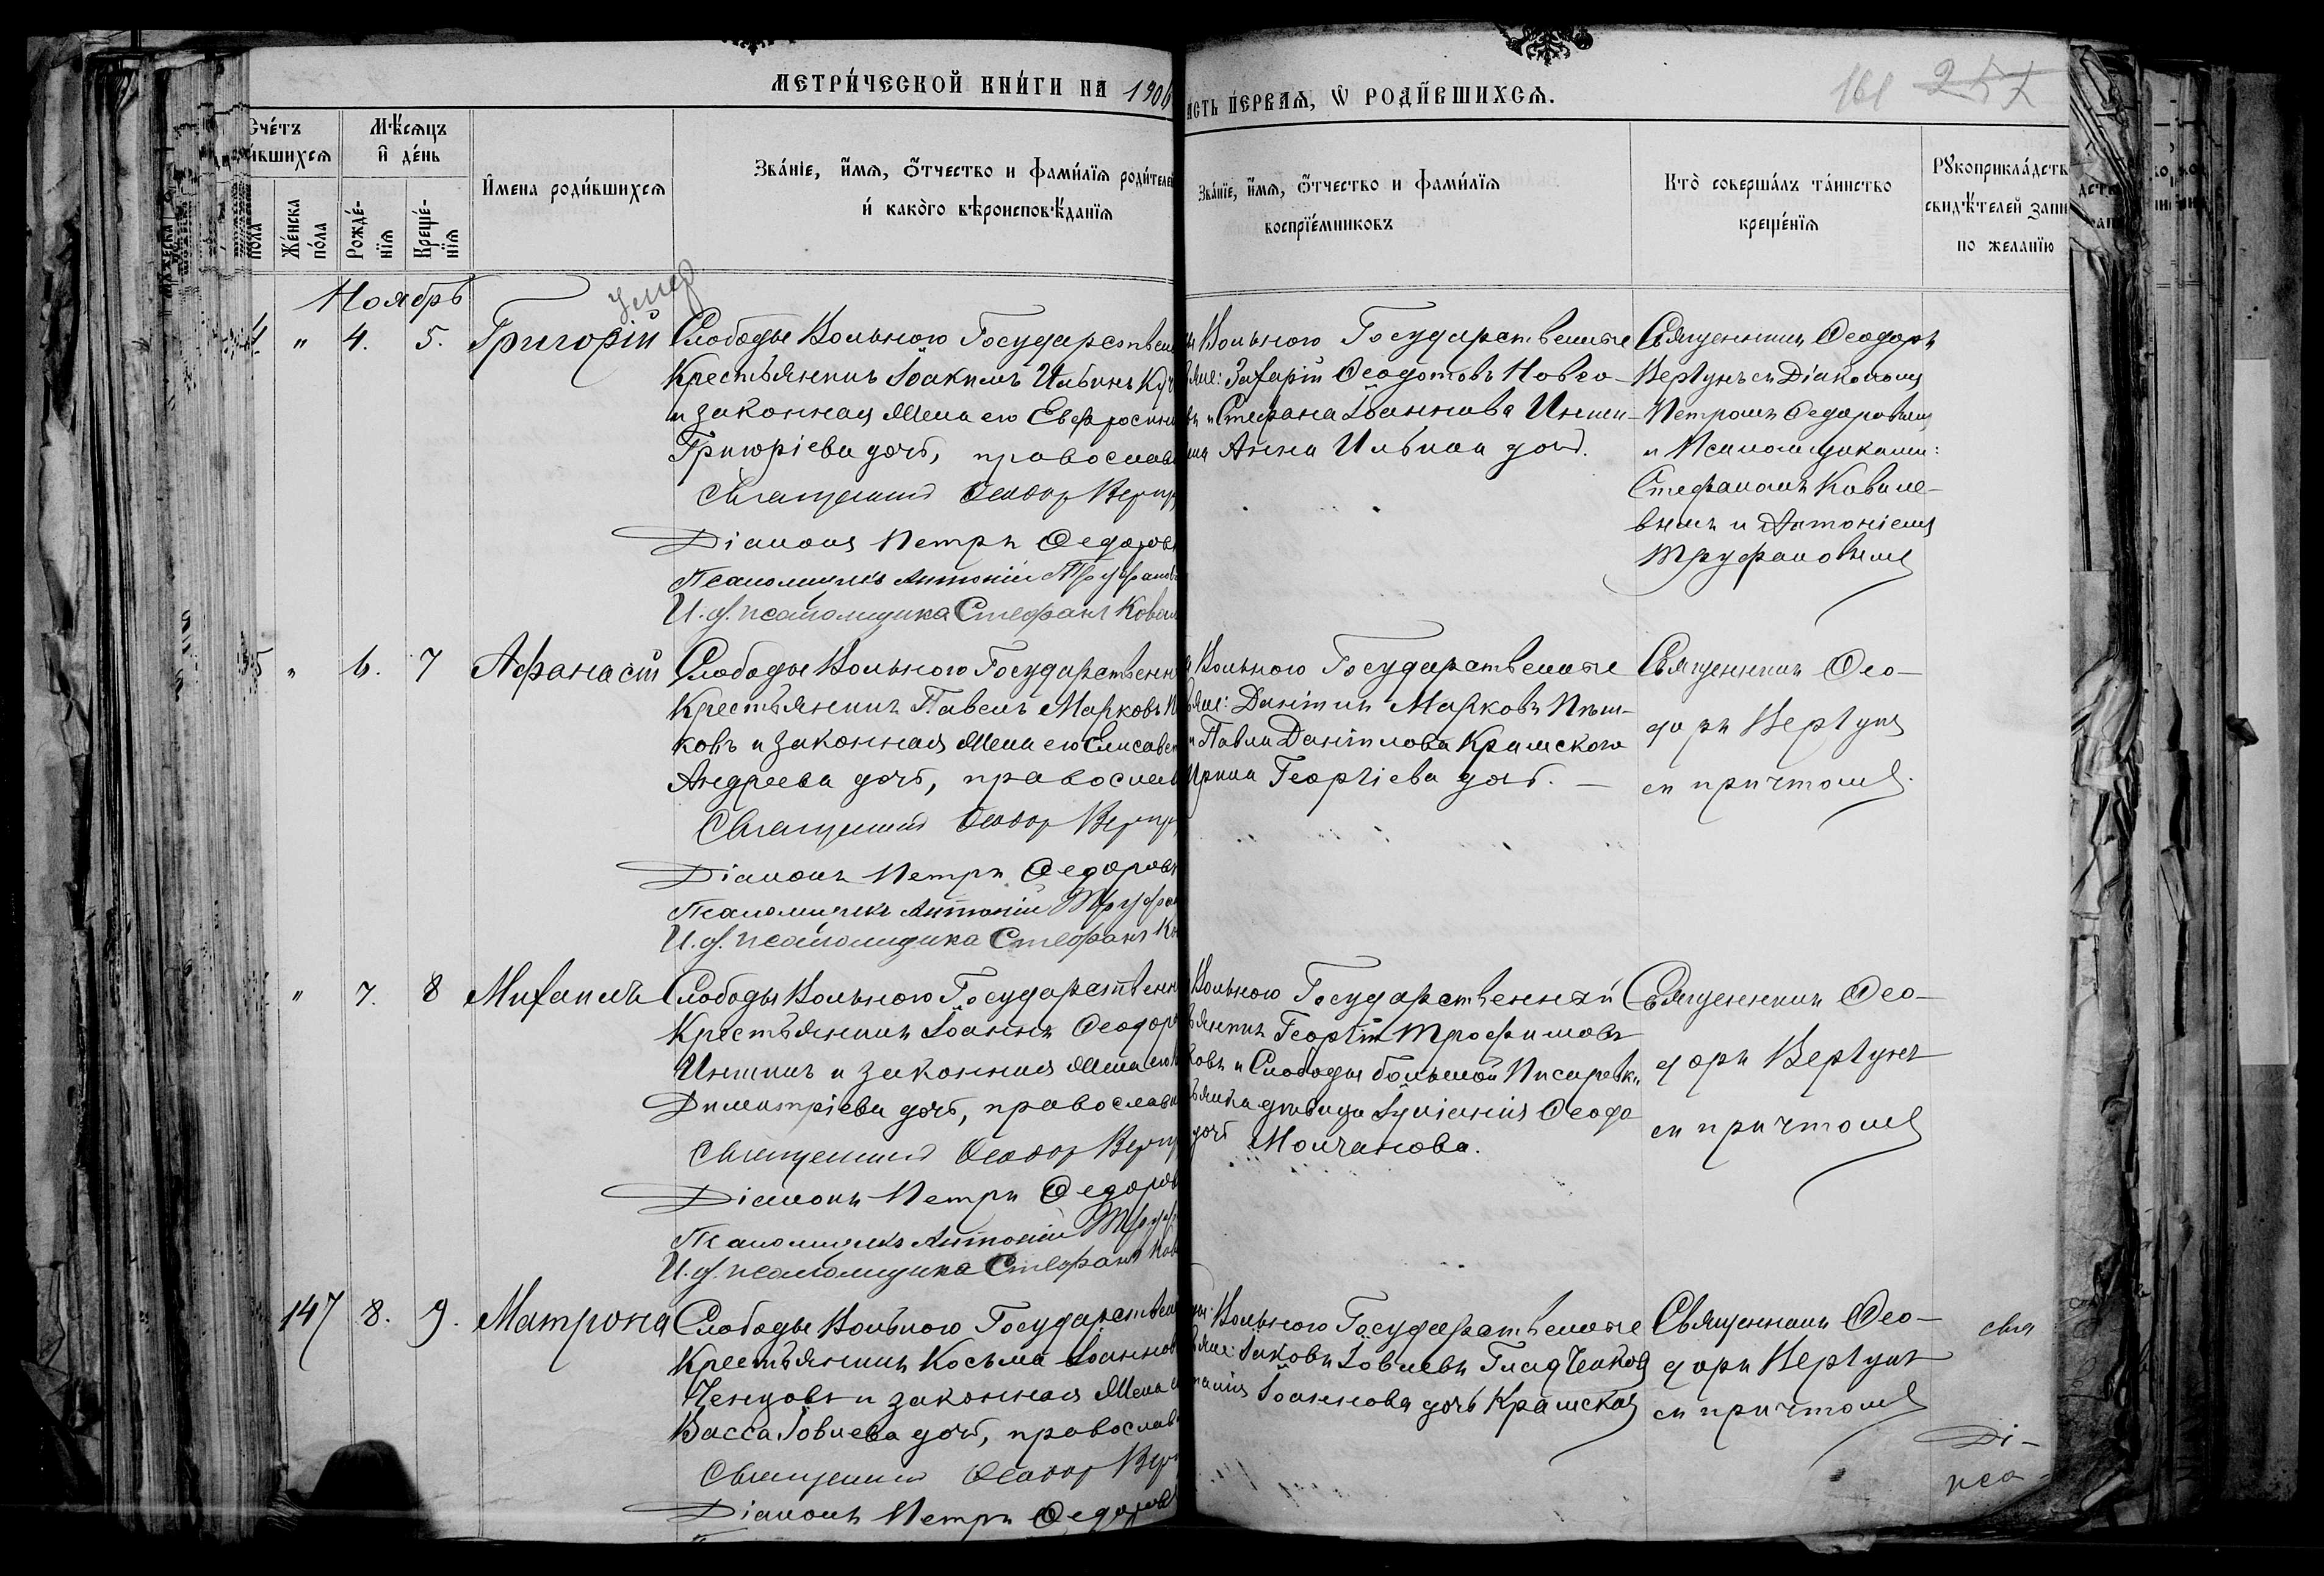 МЕТРИ́ЧЕСКОЙ КНИ́ГИ НА 190
СТЬ ПЕ́РВАЯ, Ѡ РОДИ́ВШИХСЯ.
161 257
Счéтъ
и́вшихся
Мѣ́сяцъ
и дéнь
пóла
Жéнска
пóла
Рождé-
нїя
Крещé-
нїя
И́мена роди́вшихся
Звáнїе, и́мя, ѻ́тчество и фами́лїя роди́телей
и́ какóго вѣроисповѣ́данїя
Звáнїе, и́мя, ѻ́тчество и фами́лїя
воспрїéмниковъ
Ктò совершáлъ тáинство
крещéнїя
Рꙋкоприклáдств
свидѣ́телей запи
по желанїю
Ноябрь
Умер
4 " 4. 5. Григорій
Слободы Вольного Государствен
Крестьянинъ Іоакимъ Ильинъ Куч
и законная жена его Евфросинія
Григоріева дочь, православ
Священникъ Ѳеодор Вергун
Діаконъ Петръ Ѳедоров
Псаломщикъ Антоній Труфанов
И. д. псаломщика Стефанъ Ковал
Вольного Государственные
яне: Захарій Ѳеодотовъ Ново-
въ и Стефана Іоаннова Иншин-
на Анна Ильина дочь.
Священникъ Ѳеодоръ
Вергунъ съ Діакономъ
Петромъ Ѳедоровымъ
и Псаломщиками:
Стефаномъ Ковале-
вымъ и Антоніемъ
Труфановымъ
5 " 6. 7 Афанасій
Слободы Вольного Государственн
Крестьянинъ Павелъ Марковъ П
ковъ и законная жена его Елисавет
Андреева дочь, православ
Священникъ Ѳеодор Вергун
Діаконъ Петръ Ѳедоровъ
Псаломщикъ Антоній Труфан
И. д. псаломщика Стефанъ Ко
Вольного Государственные
яне: Даніилъ Марковъ Пѣш-
и Павла Даніилова Крамского
Ирина Георгіева дочь. —
Священникъ Ѳео-
доръ Вергунъ
съ причтомъ.
" 7. 8 Михаилъ
Слободы Вольного Государственн
Крестьянинъ Іоаннъ Ѳеодоро
Иншинъ и законная жена его
Димитріева дочь, православн
Священникъ Ѳеодор Вергун
Діаконъ Петръ Ѳедоров
Псаломщикъ Антоній Труф
И. д. псаломщика Стефанъ Ков
Вольного Государственный
янинъ Георгій Трофимовъ
ковъ и Слободы большой Писаревки
янка дѣвица Іуліанія Ѳеодо
дочь Молчанова.
Священникъ Ѳео-
доръ Вергунъ
съ причтомъ
147 8. 9. Матрона
Слободы Вольного Государствен
Крестьянинъ Косьма Іоаннов
Ченцовъ и законная жена
Васса Іовлева дочь, православ
Священникъ Ѳеодор Верг
Діаконъ Петръ Ѳедоров
Вольного Государственные
яне: Іаковъ Іовлевъ Гладченковъ
Іоаннова дочь Крамская
Священникъ Ѳео-
доръ Вергунъ
съ причтомъ
свя
Ді-
пса-